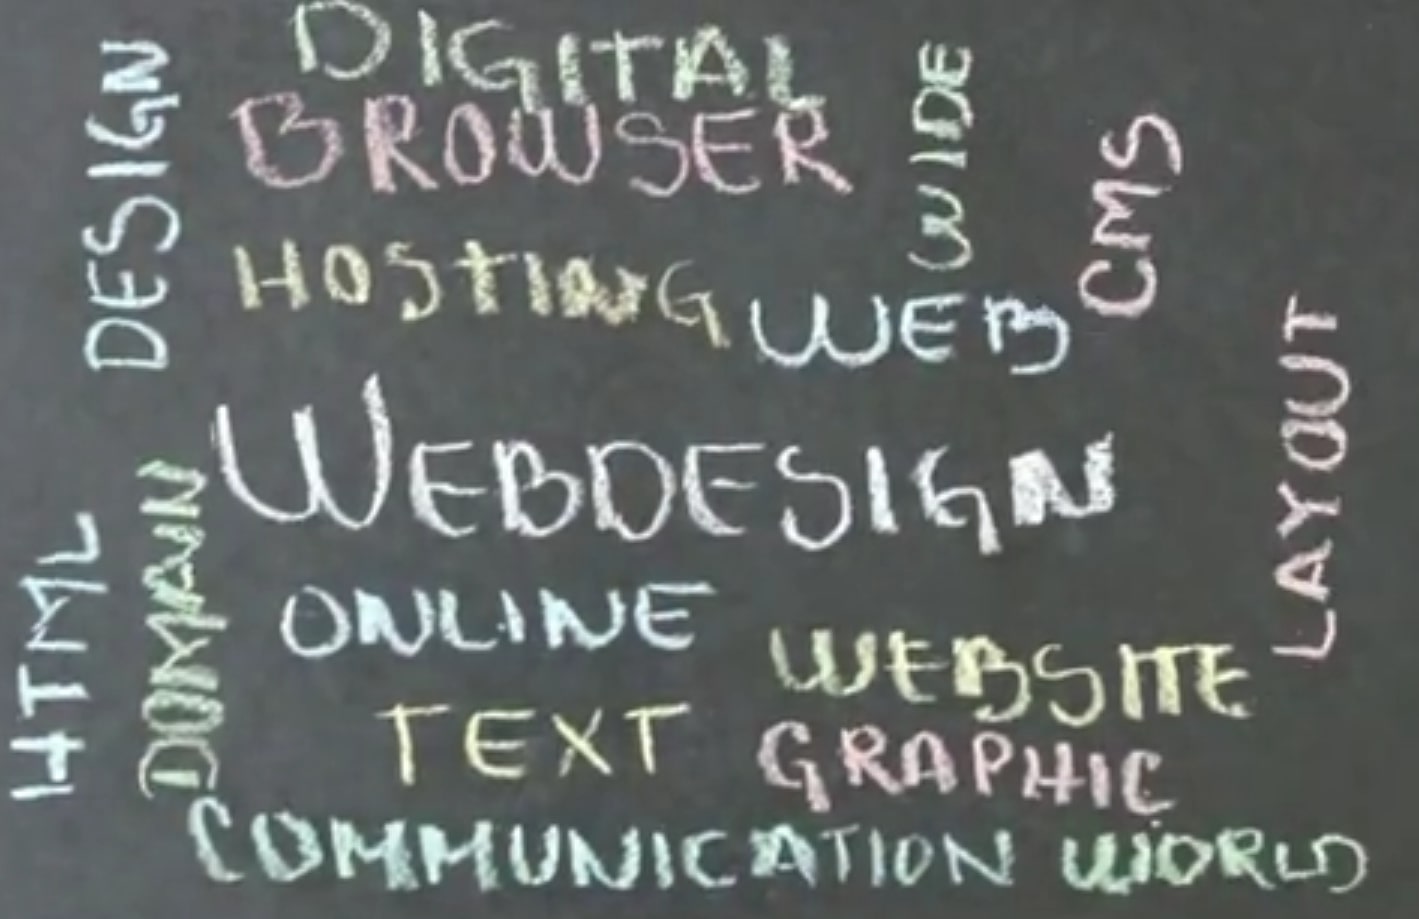 DIGITAL
DESIGN
BROWSER
WIDE
CMS
HOSTING
WEB
LAYOUT
WEBDESIGN
HTML
DOMAIN
ONLINE
WEBSITE
TEXT
GRAPHIC
COMMUNICATION WORLD